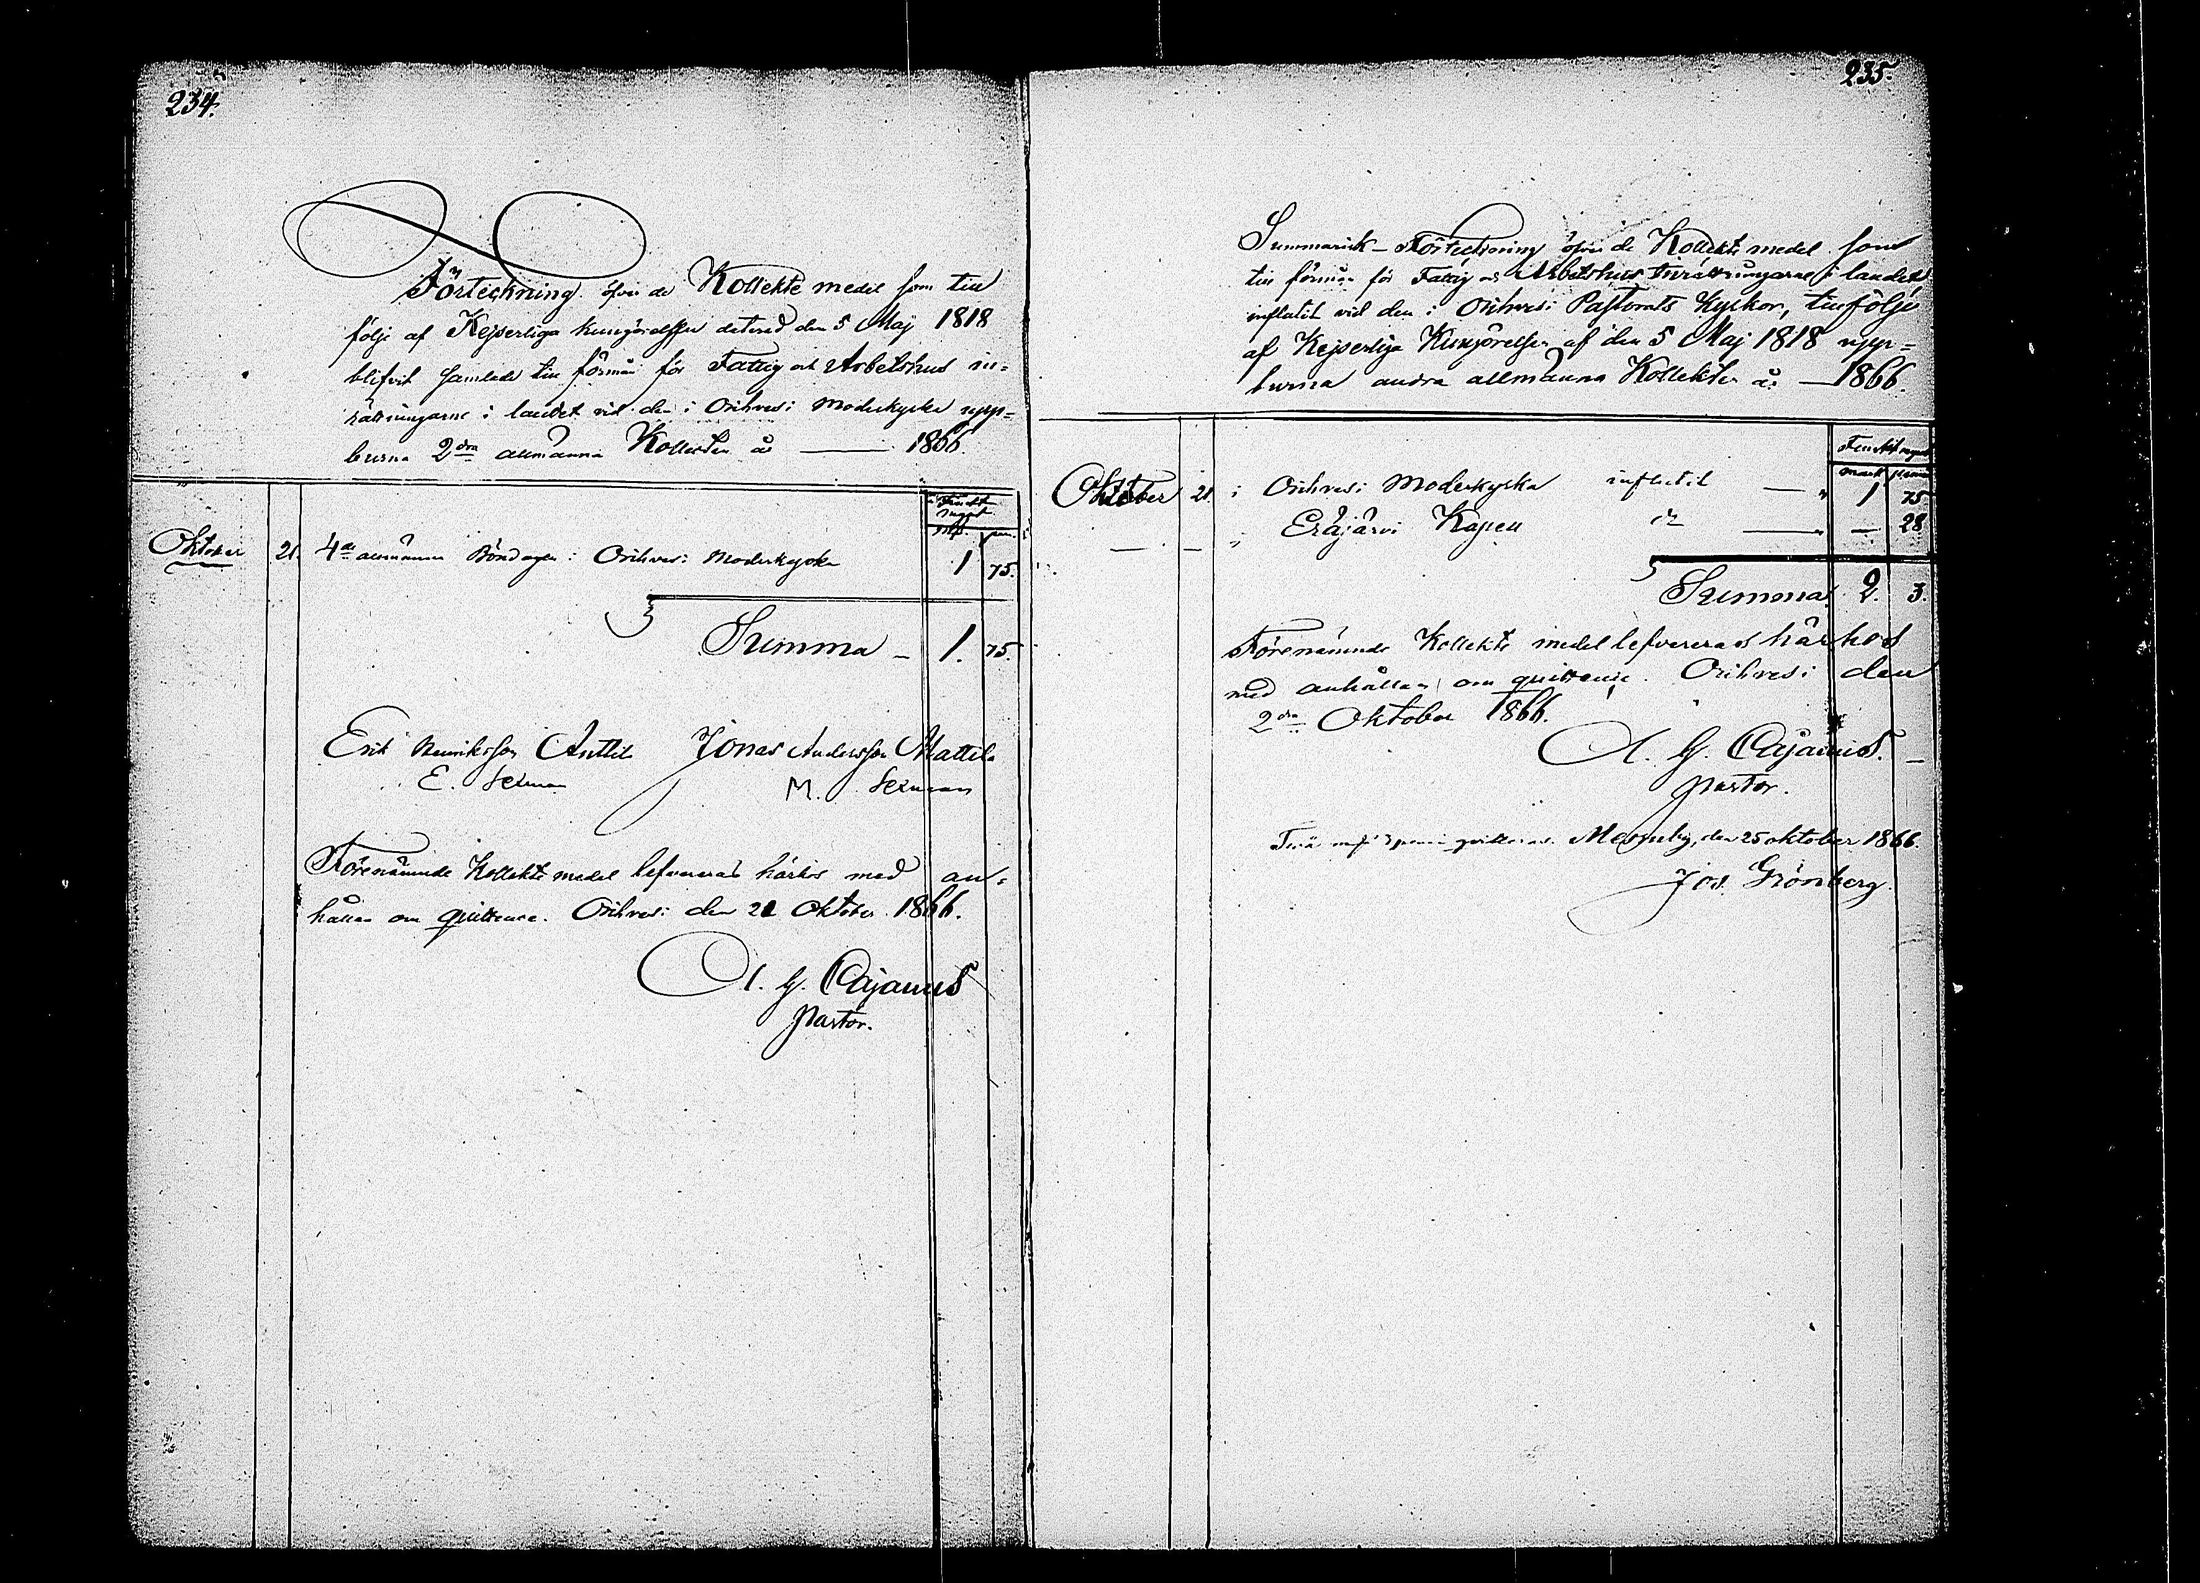 234.
Förteckning öfver de Kollekte medel som till
följe af Kejserliga kungörelsen daterad den 5 Maj 1818
blifvit samlade till förmån för Fattig och Arbetshus in=
rättningarne i landet vid den i Orihvesi Moderkyrka upp=
burna 2dra allmänna Kollekten år — 1866.
mk. pen.
Oktober 21. 4de allmänna Böndagen i Orihvesi Moderkyrka 1 75.
Summa — 1. 75.
Erik Henriksson Anttila Jonas Andersson Mattila
E. Sexman M. Sexman
Förenämnde Kollekte medel lefvereras härhos med an=
hållan om quittence. Orihvesi den 21 Oktober 1866.
A. G. Cajanus
Pastor.
235.
Summarisk Förteckning öfver de Kollekte medel som
till förmån för Fattig och Arbetshus Inrättningarne i landet
influtit vid den i Orihvesi Pastorats Kyrkor, till följe
af Kejserliga Kungörelsen af den 5 Maj 1818 upp=
burna andra allmänna Kollekten år — 1866.
mark penni
Oktober 21. i Orihvesi Moderkyrka influtit — " 1 75
— — " Eräjärvi Kapell — " — 28
Summa 2. 3.
Förenämnde Kollekte medel lefvereras härhos
med anhållan om quittence. Orihvesi den
2dra Oktober 1866.
A. G. Cajanus.
Pastor.
Två mk 3 penni quitteras. Messuby, den 25 oktober 1866.
Jos. Grönberg.